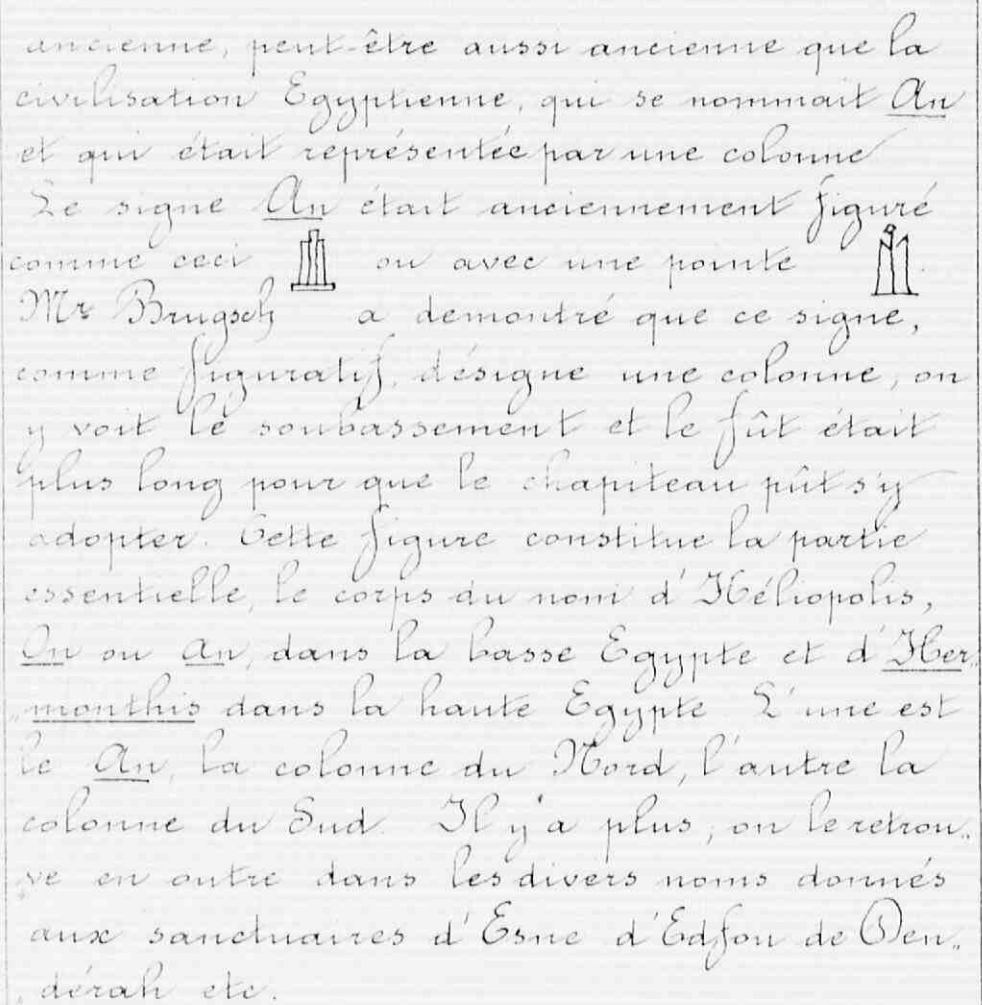 ancienne, peut-être aussi ancienne que la
civilisation Egyptienne, qui se nommait An
et qui était représentée par une colonne
Le signe An était anciennement figuré
comme ceci ou avec une pointe .
Mr Brugsch a demontré que ce signe,
comme figuratif, désigne une colonne, on
y voit le soubassement et le fût était
plus long pour que le chapiteau pût s'y
adopter. Cette figure constitue la partie
essentielle, le corps du nom d'Héliopolis,
On ou An, dans la basse Egypte et d'Her„
„monthis dans la haute Egypte L'une est
le An, la colonne du Nord, l'autre la
colonne du Sud. Il y'a plus, on le retrou„
„ve en outre dans les divers noms donnés
aux sanctuaires d'Esne d'Edfou de Den„
„dérah etc.